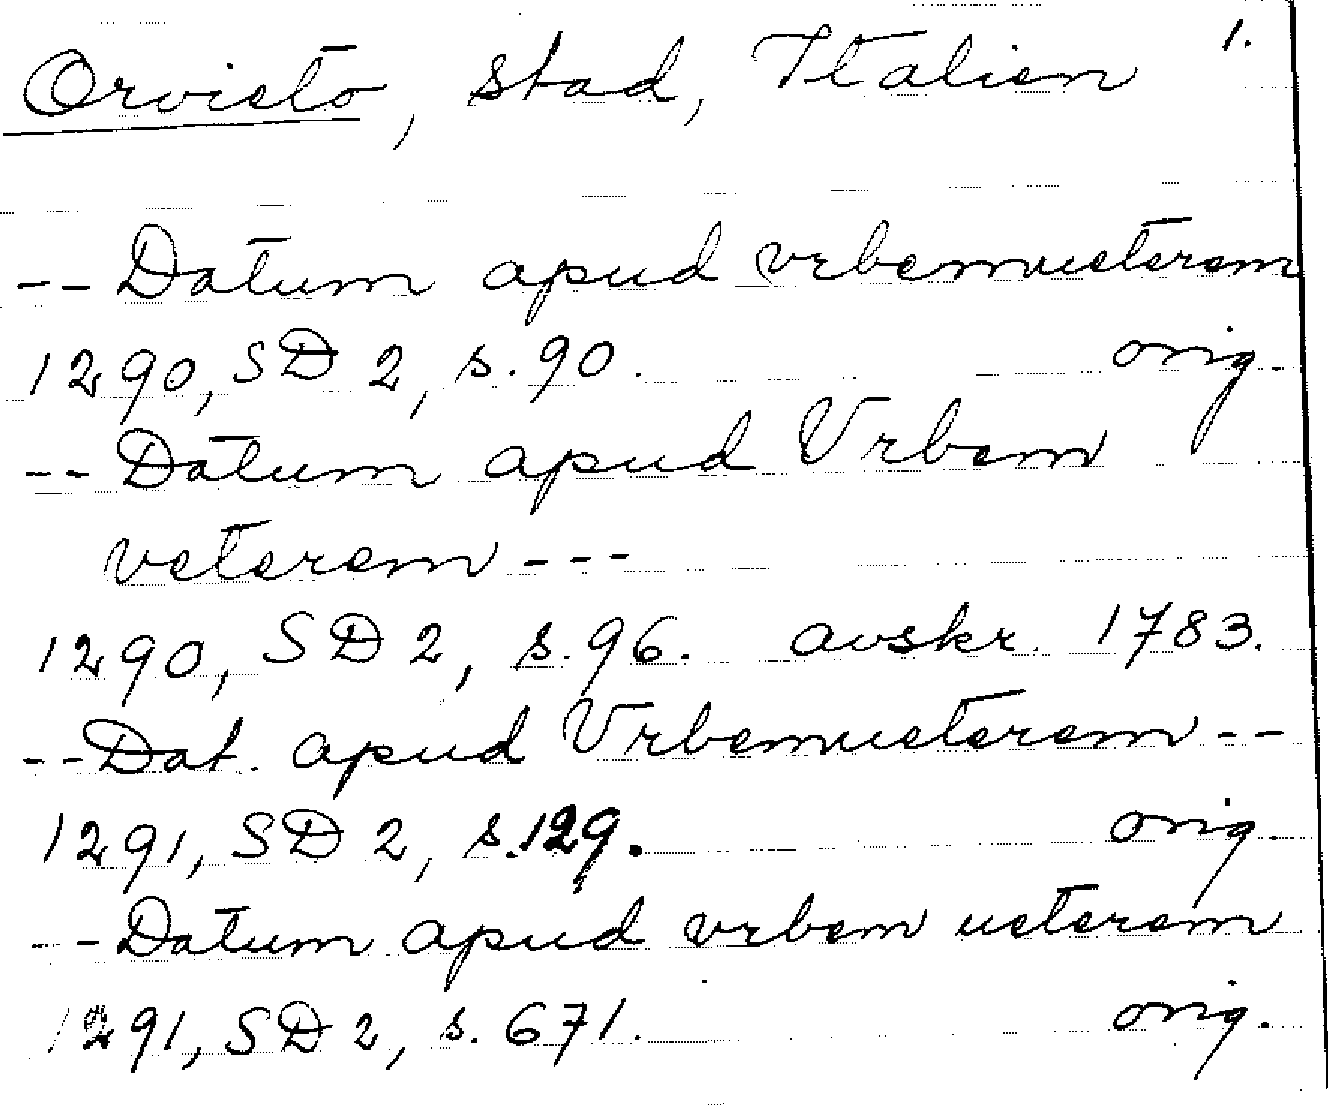 Orvieto, stad, Italien 1.
-- Datum apud vrbemueterem
1290, SD 2, s. 90. orig.
-- Datum apud Vrbem
veterem ---
1290, SD 2, s. 96. avskr. 1783.
-- Dat. apud Vrbemueterem --
1291, SD 2, s. 129. orig.
-- Datum apud vrbem ueterem
1291, SD 2, s. 671. orig.